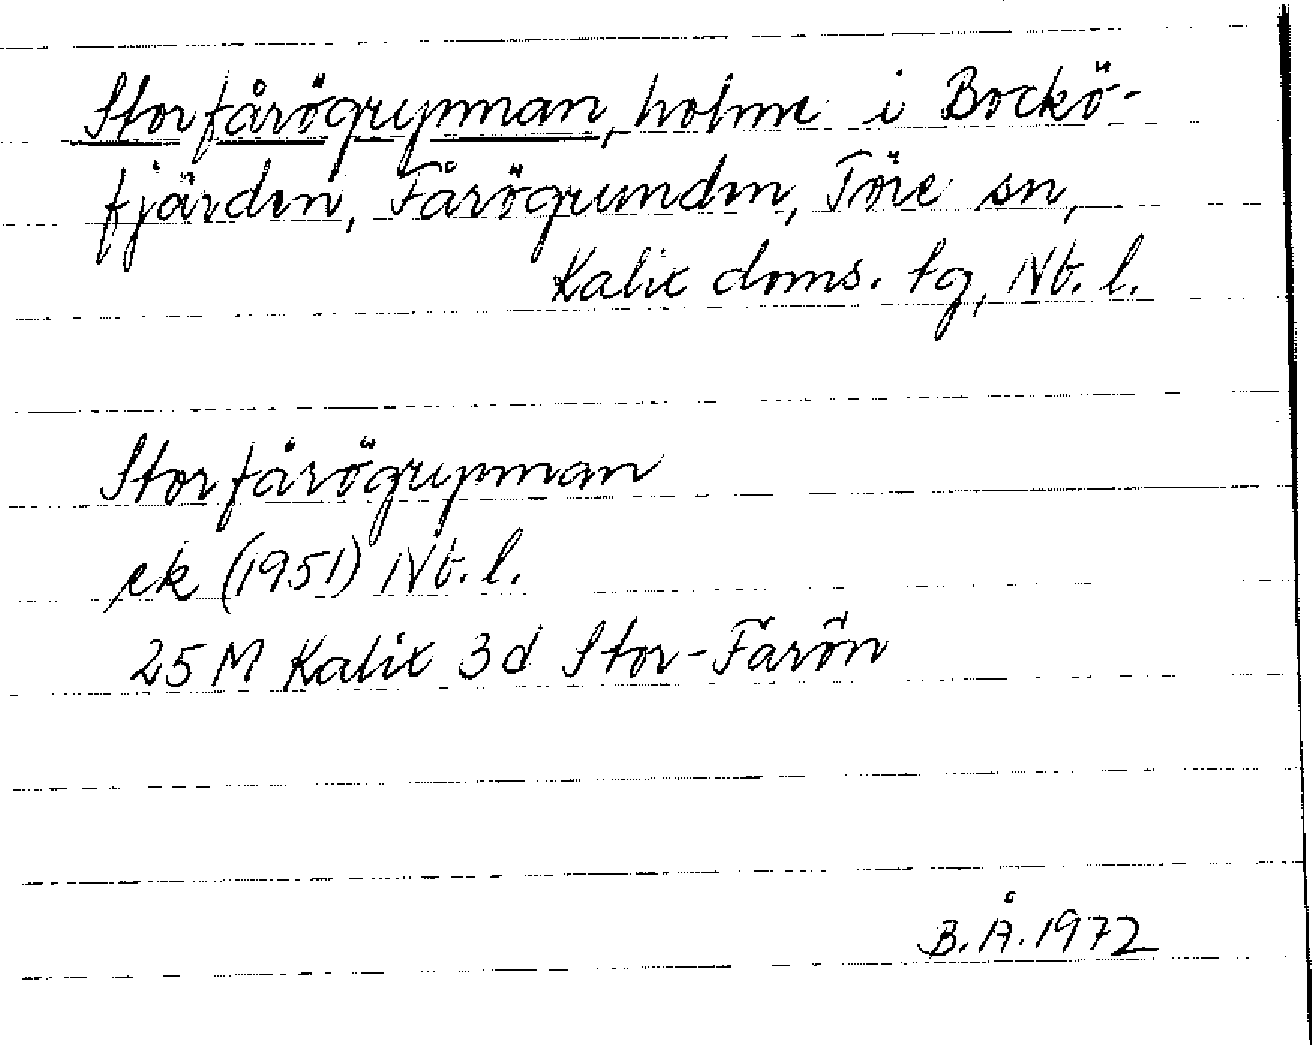 Storfårögrynnan, holme i Bockö-
fjärden, Fårögrunden, Töre sn,
Kalix doms. tg, Nb. l.
Storfårögrynnan
ek (1951) Nb. l.
25 M Kalix 3d Stor-Fårön
B.Å. 1972